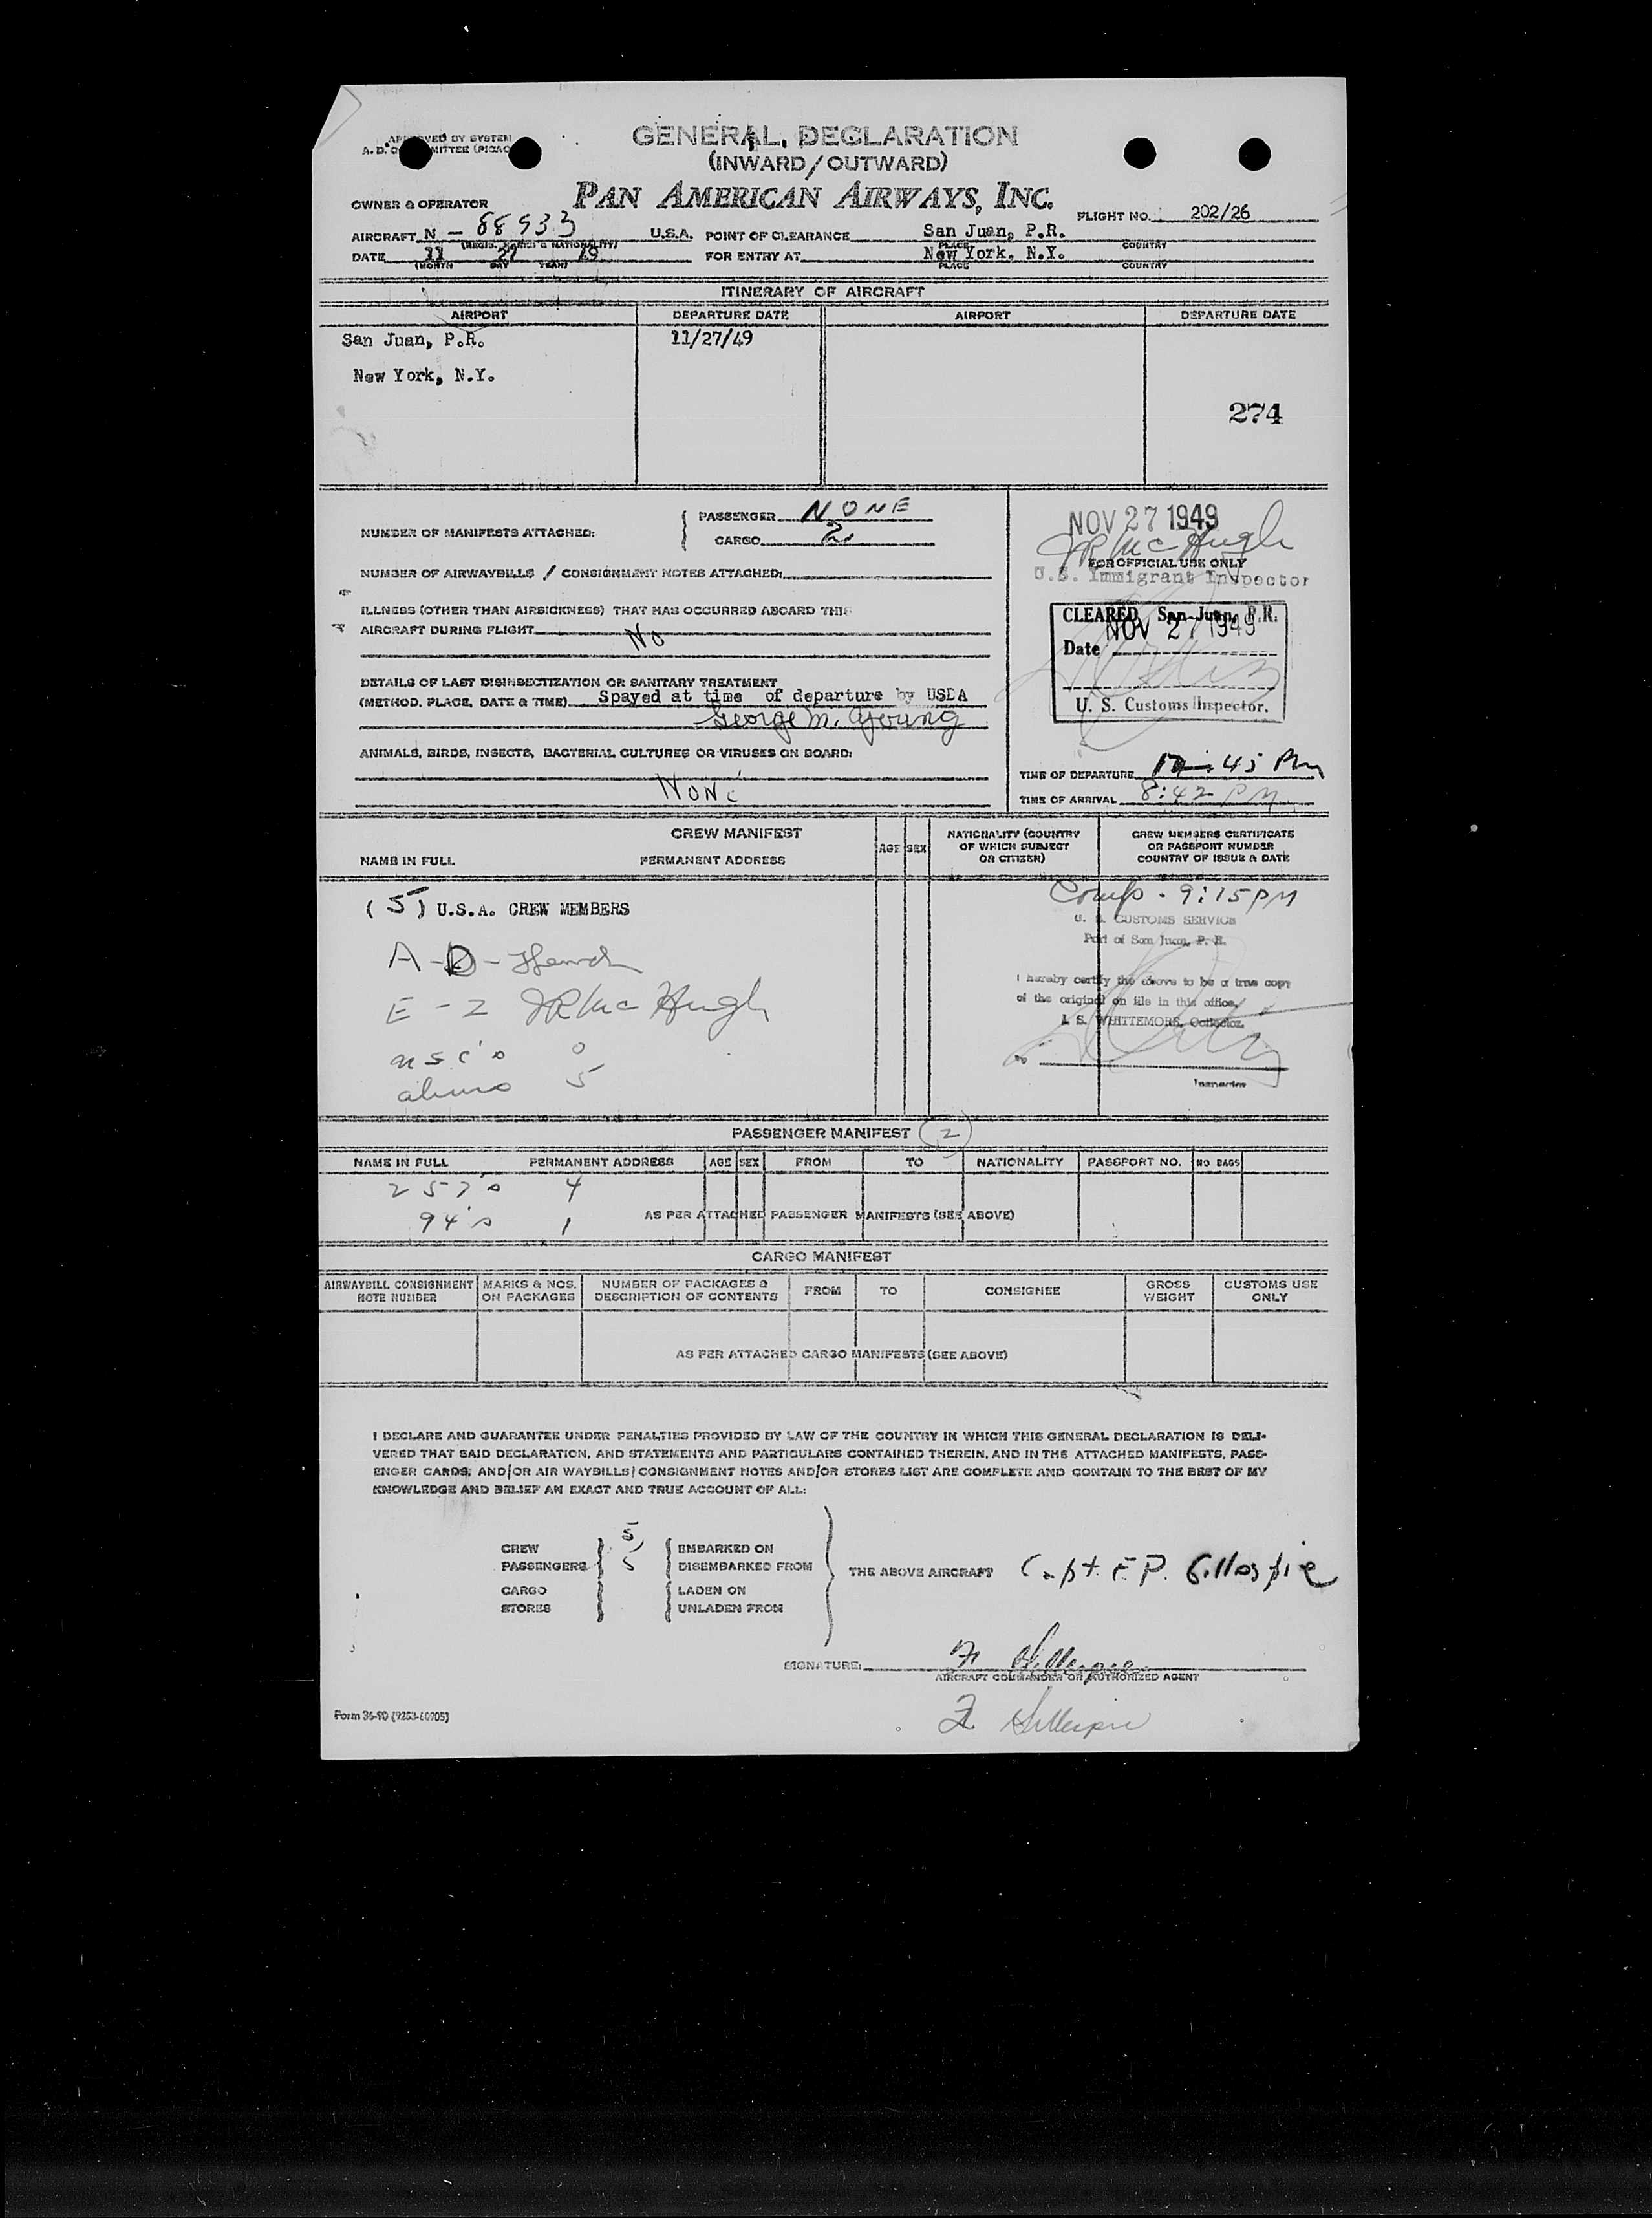 GENERAL DECLARATION
(INWARD/OUTWARD)
PAN AMERICAN AIRWAYS, INC.
OWNER & OPERATOR
FLIGHT NO. 202/26
AIRCRAFT N - 88933 U.S.A. POINT OF CLEARANCE San Juan, P.R.
PLACE COUNTRY
DATE 11 27 49 FOR ENTRY AT New York, N.Y.
(MONTH DAY YEAR) PLACE COUNTRY
ITINERARY OF AIRCRAFT
AIRPORT DEPARTURE DATE AIRPORT DEPARTURE DATE
San Juan, P.R. 11/27/49
New York, N.Y.
274
NUMBER OF MANIFESTS ATTACHED: PASSENGER NONE
CARGO 2
NOV 27 1949
JR McHugh
FOR OFFICIAL USE ONLY
U.S. Immigrant Inspector
NUMBER OF AIRWAYBILLS / CONSIGNMENT NOTES ATTACHED:
ILLNESS (OTHER THAN AIRSICKNESS) THAT HAS OCCURRED ABOARD THIS
AIRCRAFT DURING FLIGHT No
CLEARED San Juan, P.R.
NOV 27 1949
Date
U. S. Customs Inspector.
DETAILS OF LAST DISINSECTIZATION OR SANITARY TREATMENT
(METHOD, PLACE, DATE & TIME) Spayed at time of departure by USDA
George M. Young
ANIMALS, BIRDS, INSECTS, BACTERIAL CULTURES OR VIRUSES ON BOARD:
None
TIME OF DEPARTURE 45 PM
TIME OF ARRIVAL 8:42 PM
CREW MANIFEST
NAME IN FULL PERMANENT ADDRESS AGE SEX NATIONALITY (COUNTRY OF WHICH SUBJECT OR CITIZEN) CREW MEMBERS CERTIFICATE OR PASSPORT NUMBER COUNTRY OF ISSUE & DATE
Comp - 9:15 PM
(5) U.S.A. CREW MEMBERS
U. S. CUSTOMS SERVICE
Port of San Juan, P. R.
A - D -
I hereby certify the above to be a true copy
of the original on file in this office.
E - 2 JR McHugh
A. S. WHITTEMORE, Collector.
usc's 0
aliens 5
Inspector
PASSENGER MANIFEST 2
NAME IN FULL PERMANENT ADDRESS AGE SEX FROM TO NATIONALITY PASSPORT NO. NO BAGS
257's 4
94's 1
AS PER ATTACHED PASSENGER MANIFESTS (SEE ABOVE)
CARGO MANIFEST
AIRWAYBILL CONSIGNMENT NOTE NUMBER MARKS & NOS. ON PACKAGES NUMBER OF PACKAGES & DESCRIPTION OF CONTENTS FROM TO CONSIGNEE GROSS WEIGHT CUSTOMS USE ONLY
AS PER ATTACHED CARGO MANIFESTS (SEE ABOVE)
I DECLARE AND GUARANTEE UNDER PENALTIES PROVIDED BY LAW OF THE COUNTRY IN WHICH THIS GENERAL DECLARATION IS DELI-
VERED THAT SAID DECLARATION, AND STATEMENTS AND PARTICULARS CONTAINED THEREIN, AND IN THE ATTACHED MANIFESTS, PASS-
ENGER CARDS, AND/OR AIR WAYBILLS/CONSIGNMENT NOTES AND/OR STORES LIST ARE COMPLETE AND CONTAIN TO THE BEST OF MY
KNOWLEDGE AND BELIEF AN EXACT AND TRUE ACCOUNT OF ALL:
CREW 5 EMBARKED ON
PASSENGERS 5 DISEMBARKED FROM
THE ABOVE AIRCRAFT Capt. F P. Gillespie
CARGO LADEN ON
STORES UNLADEN FROM
SIGNATURE: F Gillespie
AIRCRAFT COMMANDER OR AUTHORIZED AGENT
F Gillespie